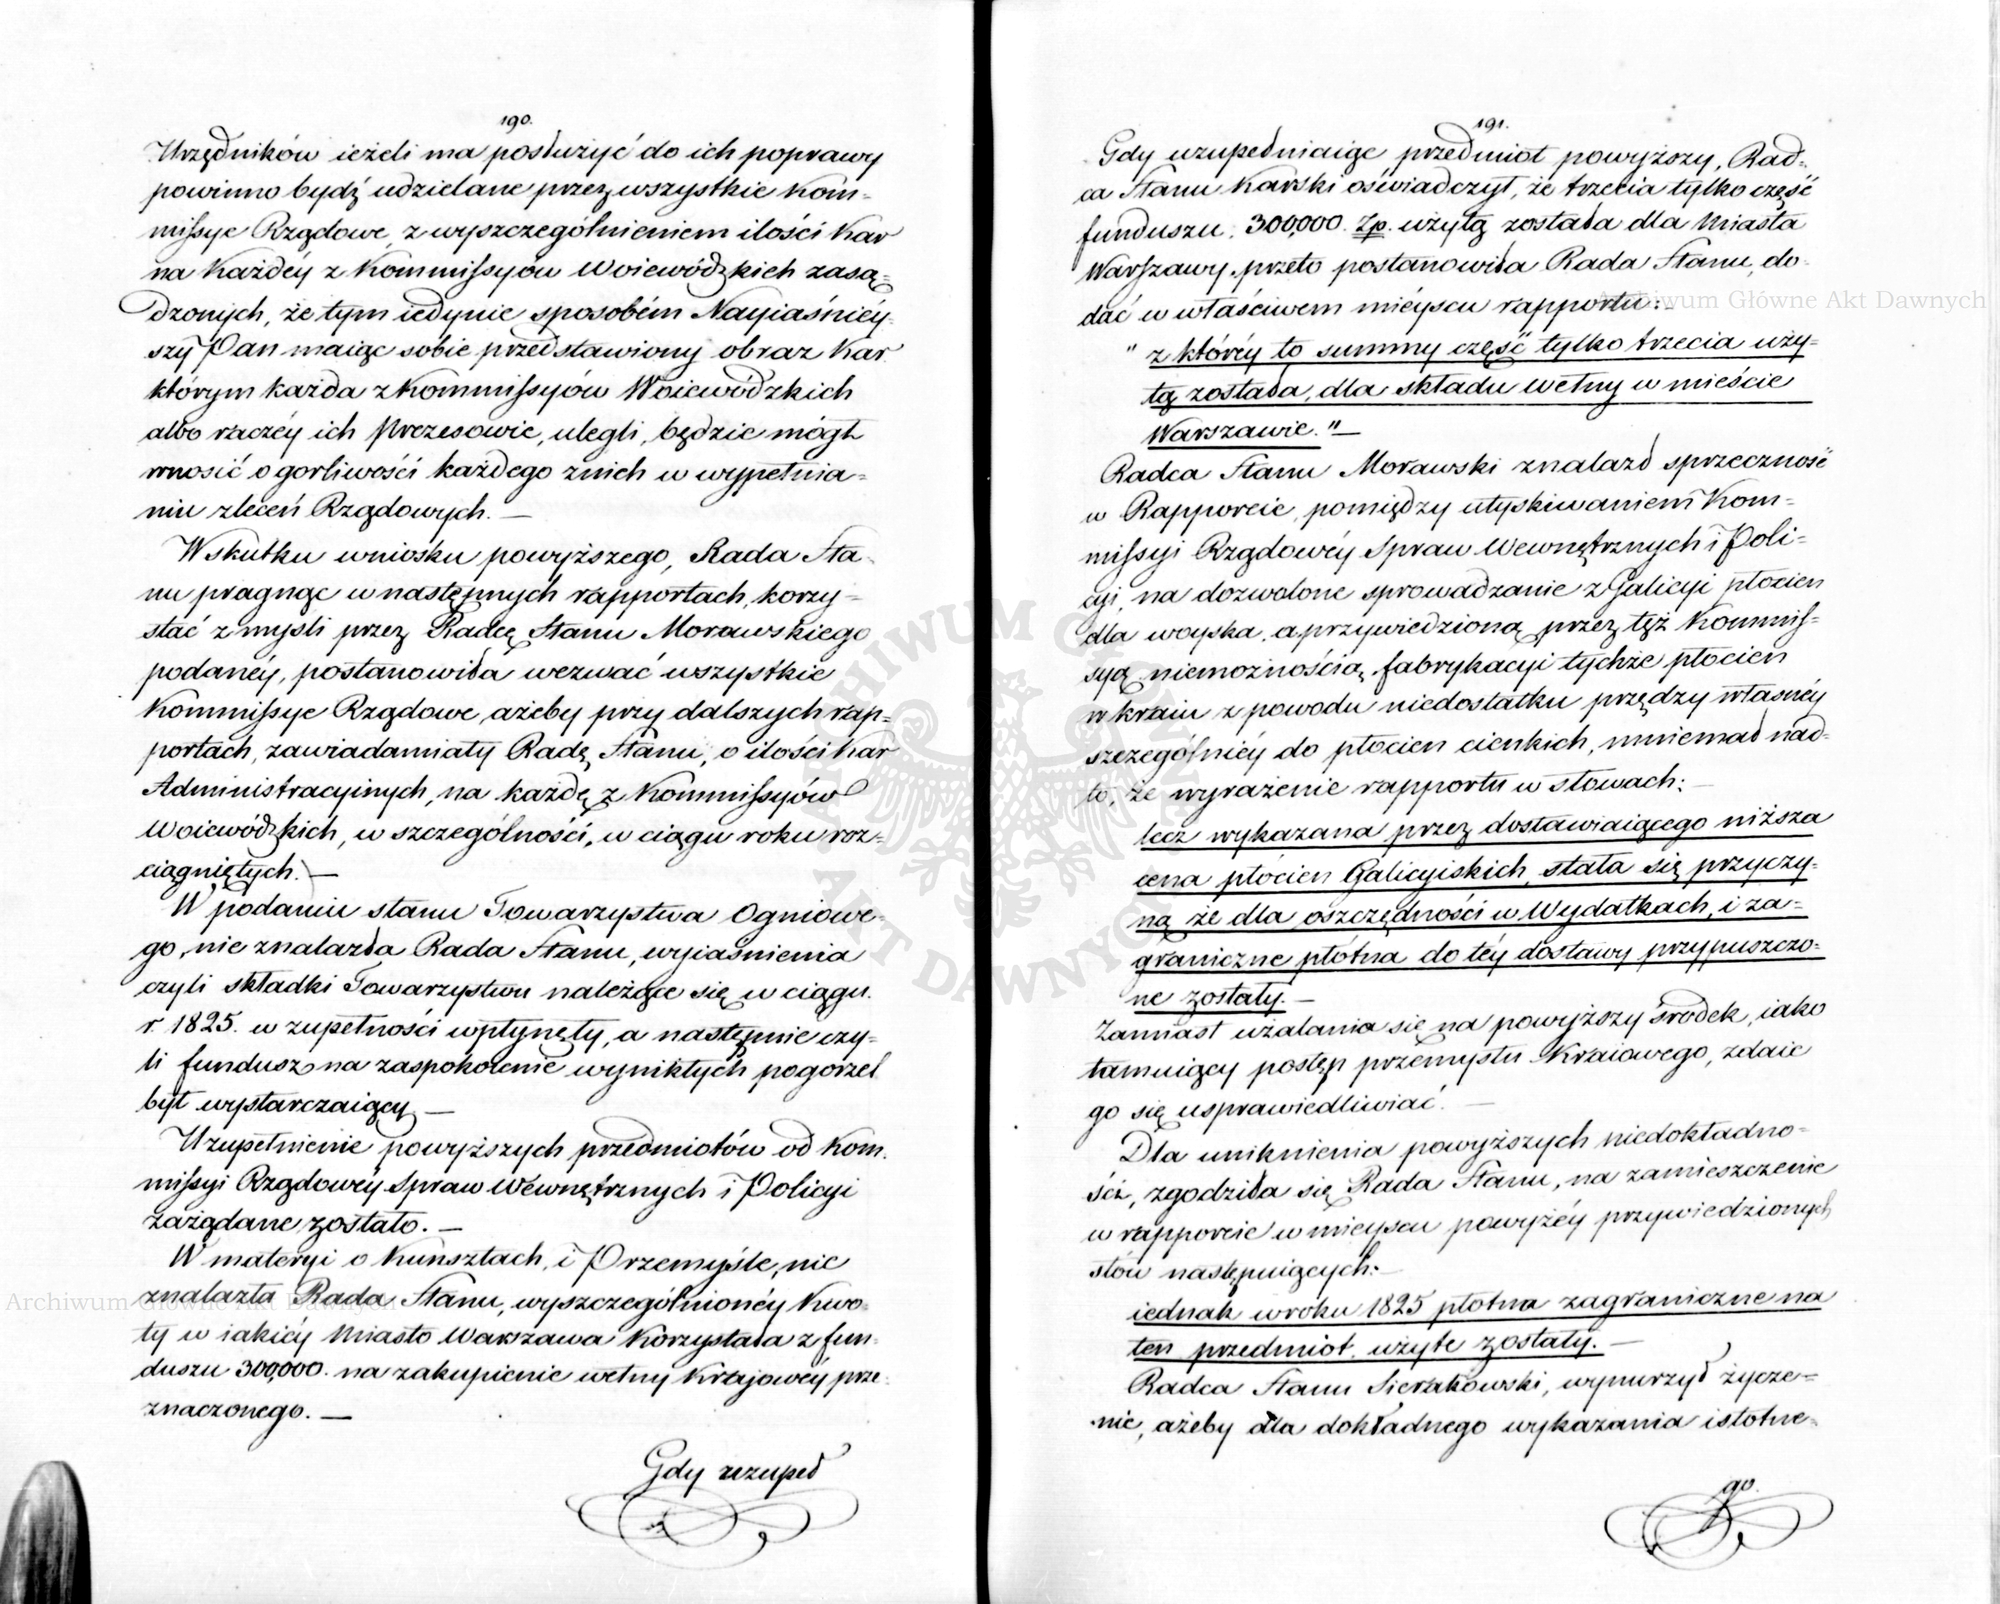 190.
Urzędników ieżeli ma posłużyć do ich poprawy
powinno bydź udzielane przez wszystkie Kom-
missye Rządowe z wyszczególnieniem ilości Kar
na Każdéy z Kommissyów Woiewódzkich zasą-
dzonych, że tym iedynie sposobém Nayiaśniéy-
szy Pan maiąc sobie przedstawiony obraz Kar
którym każda z Kommissyów Woiewódzkich
albo raczéy ich Prezesowie, ulegli, będzie mógł
wnosić o gorliwości każdego z nich w wypełnia-
niu zleceń Rządowych. —
W skutku wniosku powyższego, Rada Sta-
nu pragnąc w następnych rapportach, korzy-
stać z myśli przez Radcę Stanu Morawskiego
podanéy, postanowiła wezwać wszystkie
Kommissye Rządowe ażeby przy dalszych rap-
portach, zawiadamiały Radę Stanu, o ilości Kar
Administracyinych, na każdę z Kommissyów
Woiewódzkich, w szczególności, w ciągu roku roz-
ciągniętych. —
W podaniu stanu Towarzystwa Ogniowe-
go, nie znalazła Rada Stanu, wyiaśnienia
czyli składki Towarzystwu należące się w ciągu
r. 1825. w zupełności wpłynęły, a następnie czy-
li fundusz na zaspokoienie wynikłych pogorzel
był wystarczaiący. —
Uzupełnienie powyższych przedmiotów od Kom-
missyi Rządowéy Spraw Wewnętrznych i Policyi
zażądane zostało. —
W materyi o Kunsztach, i Przemyśle, nie
znalazła Rada Stanu, wyszczególnionéy Kwo-
ty w iakiéy Miasto Warszawa Korzystała z fun-
duszu 300,000. na zakupienie wełny Krajowéy prze-
znaczonego. —
Gdy uzupeł
191.
Gdy uzupełniaiąc przedmiot powyższy, Rad-
ca Stanu Karski oświadczył, że trzecia tylko część
funduszu 300,000. Zp. użytą została dla Miasta
Warszawy. przeto postanowiła Rada Stanu, do-
dać w właściwem mieyscu rapportu: —
" z któréy to summy część tylko trzecia uży-
tą została, dla składu wełny w mieście
Warszawie." —
Radca Stanu Morawski znalazł sprzeczność
w Rapporcie, pomiędzy utyskiwaniem Kom-
missyi Rządowéy Spraw Wewnętrznych i Poli-
cyi, na dozwolone sprowadzanie z Galicyi płócien
dla woyska, a przywiedzioną przez tęż Kommis-
syą niemożnością fabrykacyi tychże płocien
w kraiu z powodu niedostatku przędzy własnéy
szczególniéy do płocien cienkich, mniemał nad-
to, że wyrażenie rapportu w słowach: —
lecz wykazana przez dostawiaiącego niższa
cena płócien Galicyiskich, stała się przyczy-
ną że dla oszczędności w Wydatkach, i za-
graniczne płótna do téy dostawy przypuszczo-
ne zostały. —
Zamiast użalania się na powyższy środek, iako
tamuiący postęp przemysłu Kraiowego, zdaie
go się usprawiedliwiać. —
Dla uniknienia powyższych niedokładno-
ści, zgodziła się Rada Stanu, na zamieszczenie
w rapporcie w mieyscu powyżéy przywiedzionych
słów następuiących: —
iednak w roku 1825 płótna zagraniczne na
ten przedmiot użyte zostały. —
Radca Stanu Sierakowski, wynurzył życze-
nie, ażeby dla dokładnego wykazania istotne-
go.
Archiwum Główne Akt Dawnych
Archiwum Główne Akt Dawnych
ARCHIWUM GŁÓWNE AKT DAWNYCH